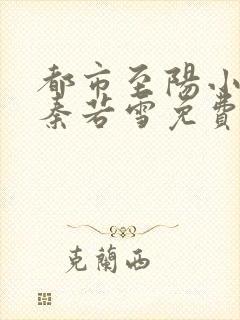 都市至陽小
秦若雪免費
克蘭西